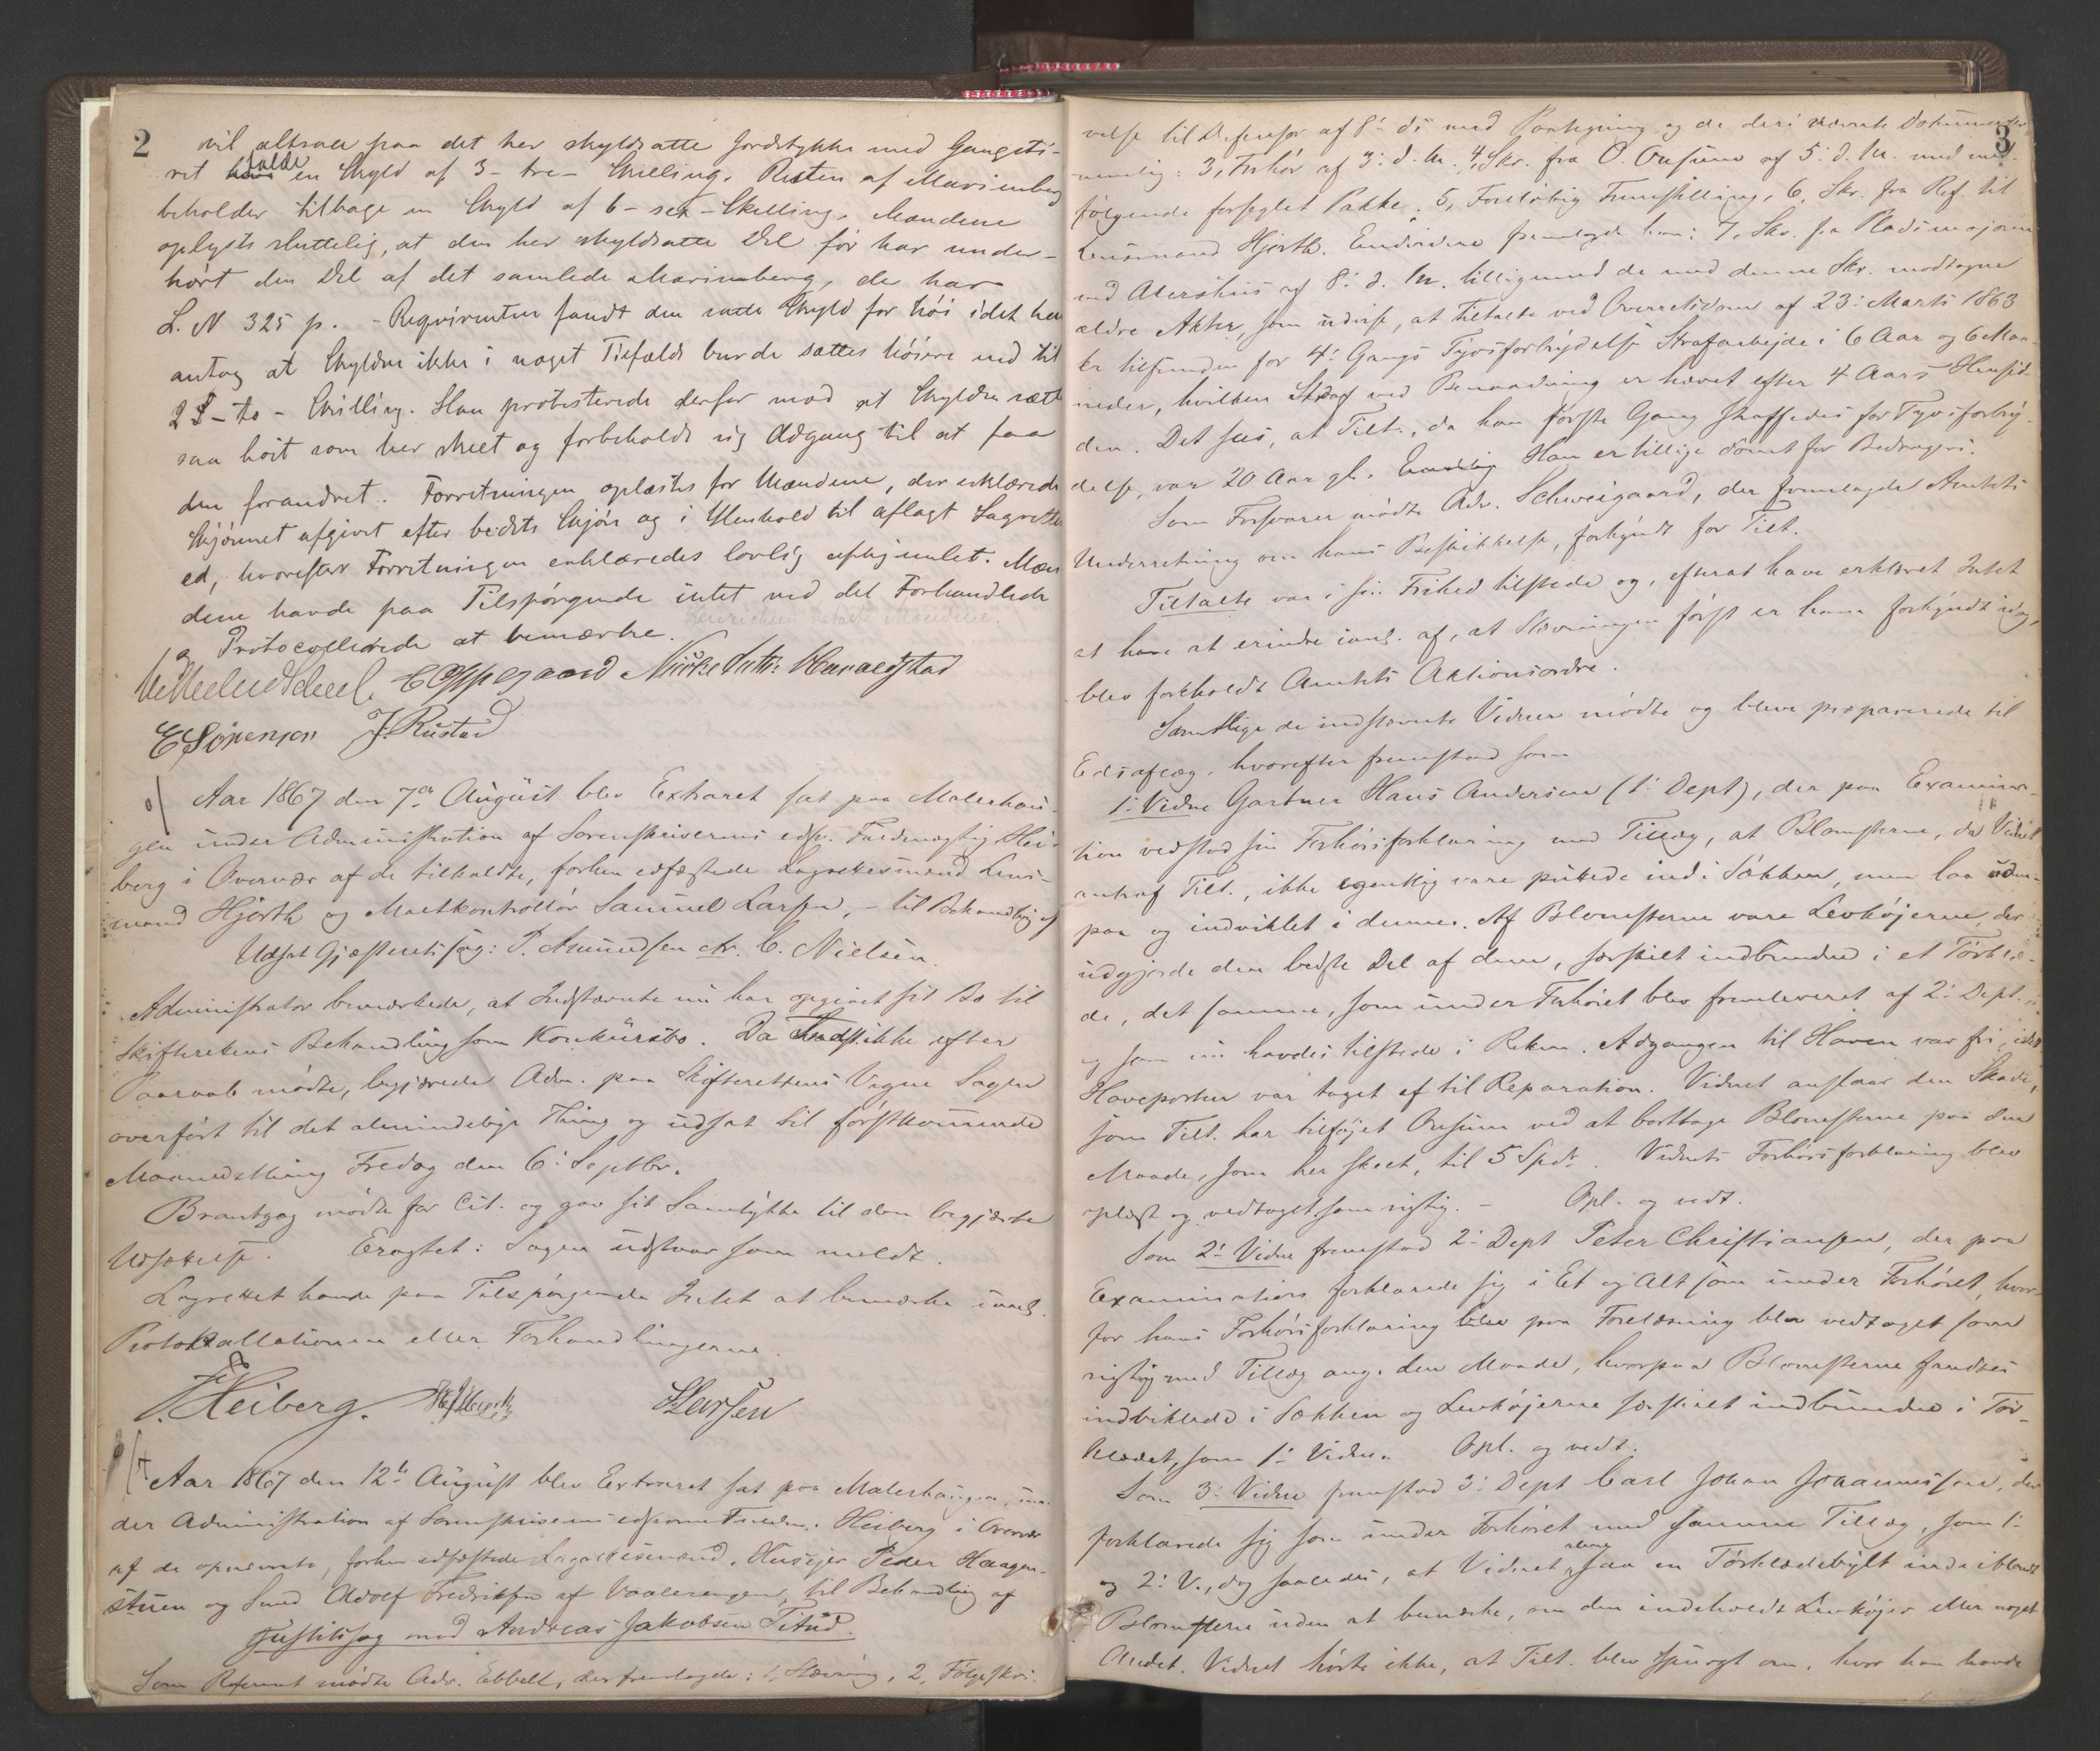 2
vil altsaa paa det her skyldsatte Jordstykke med Gangsti-
ret falde en Skyld af 3 - tre - Skilling. Resten af Marienberg
beholder tilbage en Skyld af 6 - sex - Skilling. Mændene
oplyste sluttelig, at den her skyldsatte Del før har under-
hørt den Del af det samlede Marienberg, der har
L. N 325 p. - Reqvirenten fandt den satte Skyld for høi idet han
antog at Skylden ikke i noget Tilfælde burde sættes høiere end til
2 ß - to - Skilling. Han protesterede derfor mod at Skylden sættes
saa høit som her skeet og forbeholdt sig Adgang til at faa
den forandret. Forretningen oplæstes for Mændene, der erklærede
Skjønnet afgivet efter bedste Skjøn og i Henhold til aflagt Lagrettes
ed, hvorefter Forretningen erklæredes lovlig afhjemlet. Mæn
dene havde paa Tilspørgende intet ved det Forhandlede
og Protocollerede at bemærke.
E Oppegaard Haraldstad
E Sørensen J. Rustad
Aar 1867 den 7de August blev Extraret sat paa Malerhau-
gen under Administration af Sorenskriverens edsv. Fuldmægtig Hei-
berg i Overvær af de tilkaldte, forhen edfæstede Lagrettesmænd Lens-
mand Hjorth og Maltkontrollør Samuel Larsen, - til Behandling af
Udsat Gjæsteretssag: P. Amundsen ctr. C. Nielsen.
Administrator bemærkede, at Indstævnte nu har opgivet sit Bo til
Skifterettens Behandling som Konkursbo. Da Indst. ikke efter
Paaraab mødte, begjærede Adm. paa Skifterettens Vegne Sagen
overført til det almindelige Thing og udsat til førstkommende
Maanedsthing Fredag den 6: Septbr.
Brantzeg mødte for Cit. og gav sit Samtykke til den begjærte
Udsættelse. Eragtet: Sagen udstaar som meldt.
Lagrettet havde paa Tilspørgende Intet at bemærke mod
Protokollationen eller Forhandlingerne.
Heiberg. SLarsen
Aar 1867 den 12te August blev Extraret sat paa Malerhaugen, un-
der Administration af Sorenskriverens edsvorne Fuldm. Heiberg i Overvær
af de opnævnte, forhen edfæstede Lagrettesmænd, Huseier Peder Haagen-
stuen og Smed Adolf Fredriksen af Vaalerengen, til Behandling af
Justitssag mod Andreas Jakobsen Titud.
Som Referent mødte Adv. Ebbell, der fremlagde: 1, Stævning, 2, Følgeskri-
3
velse til Defensor af 8: ds med Paategning og de deri nævnte Dokumenter
nemlig: 3, Forhør af 3: d. M. 4, Skr. fra O. Onsum af 5: d. M. med med-
følgende forseglet Pakke, 5, Foreløbig Fremstilling, 6, Skr. fra Ref. til
Lensmand Hjorth. Endvidere fremlagde han: 7, Skr. fra Pladsmajoren
ved Akershus af 8: d. M. tilligemed de med denne Skr. modtagne
ældre Akter, som udvise, at Tiltalte ved Overretsdom af 23: Marts 1863
er tilfunden for 4: Gangs Tyvsforbrydelse Strafarbejde i 6 Aar og 6 Maa-
neder, hvilken Straf ved Benaadning er hævet efter 4 Aars Hensid-
den. Det sees, at Tilt., da han første Gang straffedes for Tyvsforbry-
delse, var 20 Aar gl. Han er tillige dømt for Bedrageri.
Som Forsvarer mødte Adv. Schweigaard, der fremlagde Amtets
Underretning om hans Beskikkelse, forkyndt for Tilt.
Tiltalte var i sin Frihed tilstede og, efterat have erklæret Intet
at have at erindre imod af, at Stævningen først er ham forkyndt idag,
blev foreholdt Amtets Aktionsordre.
Samtlige de indstævnte Vidner mødte og bleve præparerede til
Edsaflæg, hvorefter fremstod som
1: Vidne Gartner Hans Andersen (1: Dept), der paa Examina-
tion vedstod sin Forhørsforklaring med Tillæg, at Blomsterne, da Vidnet
antraf Tilt., ikke egentlig vare puttede ind i Sækken, men laa uden-
paa og indviklet i denne. Af Blomsterne vare Levkøjerne, der
udgjorde den bedste Del af dem, særskilt indbundne i et Tørklæ-
de, det samme, som under Forhøret blev fremleveret af 2: Dept.
og som nu havdes tilstede i Retten. Adgangen til Haven var fri, idet
Haveporten var taget af til Reparation. Vidnet anslaar den Skade,
som Tilt. har tilføjet Onsum ved at borttage Blomsterne paa den
Maade, som her skeet, til 5 Spdr. Vidnets Forhørsforklaring blev
oplæst og vedtaget som rigtig. - Opl. og vedt.
Som 2: Vidne fremstod 2: Dept Peter Christiansen, der paa
Examination forklarede sig i Et og Alt som under Forhøret, hvor-
for hans Forhørsforklaring blev paa Forelæsning blev vedtaget som
rigtig med Tillæg ang. den Maade, hvorpaa Blomsterne fandtes
indviklede i Sækken og Levkøjerne særskilt indbundne i Tør-
klædet, som 1: Vidne. Opl. og vedt.
Som 3: Vidne fremstod 3: Dept Carl Johan Johannessen, der
forklarede sig som under Forhøret med samme Tillæg, som 1:
og 2: V., dog saaledes, at Vidnet alene saa en Tørklædebylt inde iblandt
Blomsterne uden at bemærke, om den indeholdt Levkøjer eller noget
Andet. Vidnet hørte ikke, at Tilt. blev spurgt om, hvor han havde